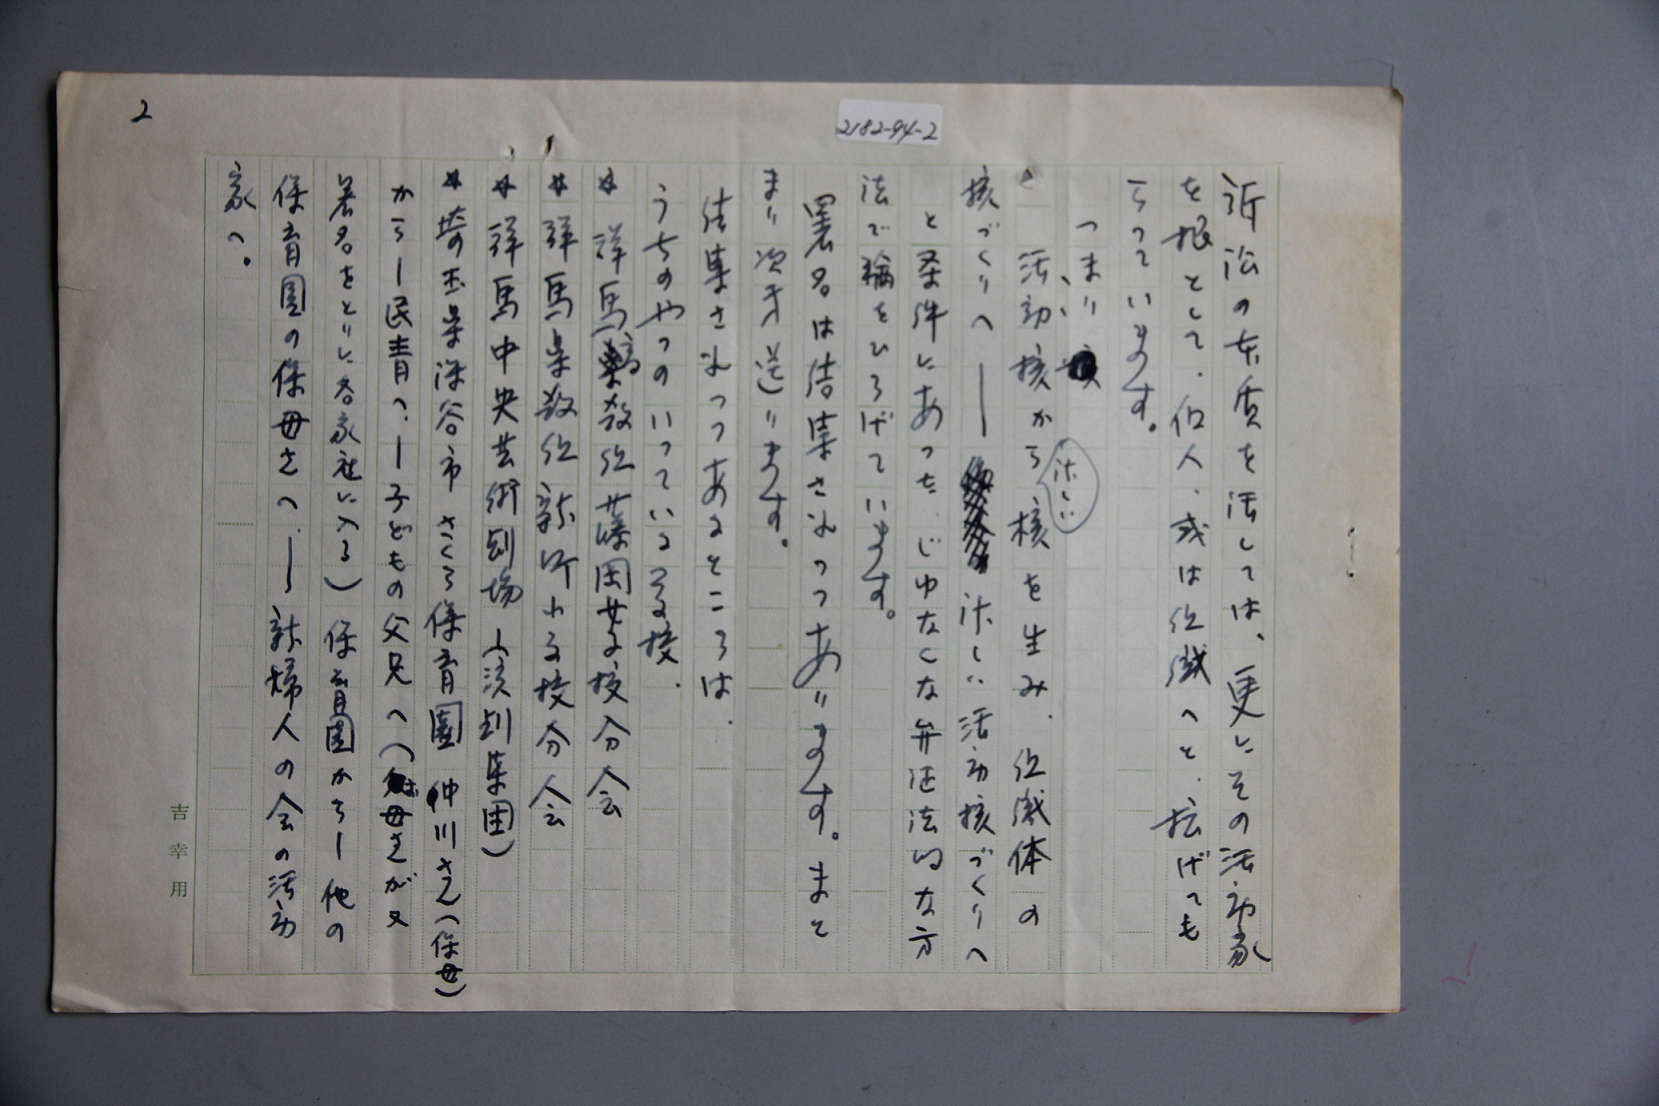 2
2182-94-2
訴訟の本質を活しては、更にその活動家
を根として、個人、或は組織へと、拡げても
らっています。
つまり、
活動核から核を生み、組織体の
新しい
核づくりへ — 新しい活動核づくりへ
と条件にあった、じゆなんな弁証法的な方
法で輪をひろげています。
署名は結集されつつあります。まと
まり次才送ります。
結集されつつあるところは、
うちのやつのいっている学校、
* 群馬高教組藤岡女子校分会
* 群馬県教組新町小学校分会
* 群馬中央芸術劇場(演劇集団)
* 埼玉県深谷市さくら保育園 仲川さん(保母)
から—民青へ—子どもの父兄へ(保母さんが又
署名をとりに各家庭に入る)保育園から—他の
保育園の保母さんへ、—新婦人の会の活動
家へ。
吉幸用